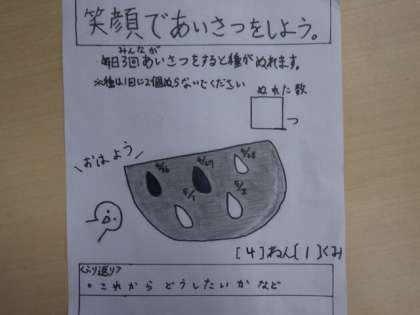 笑顔であいさつをしよう。
みんなが
毎日3回あいさつをすると種がぬれます。
※種は1日に2個ぬらないでください
ぬれた数
つ
おはよう
4/26
4/27
4/28
5/1
5/2
[4]ねん[1]くみ
<ふり返り>
・これからどうしたいかなど